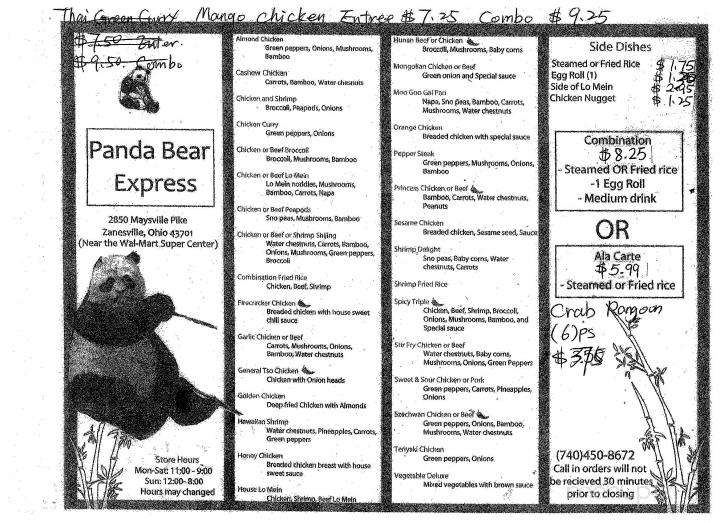 Thai Green Curry Mango chicken Entree $7.25 Combo $9.25
$7.50 Enter.
$9.50 Combo
Panda Bear
Express
2850 Maysville Pike
Zanesville, Ohio 43701
(Near the Wal-Mart Super Center)
Store Hours
Mon-Sat: 11:00 - 9:00
Sun: 12:00- 8:00
Hours may changed
Almond Chicken
Green peppers, Onions, Mushrooms,
Bamboo
Cashew Chicken
Carrots, Bamboo, Water chesnuts
Chicken and Shrimp
Broccoli, Peapods, Onions
Chicken Curry
Green peppers, Onions
Chicken or Beef Broccoli
Broccoli, Mushrooms, Bamboo
Chicken or Beef Lo Mein
Lo Mein noddles, Mushrooms,
Bamboo, Carrots, Napa
Chicken or Beef Peapods
Sno peas, Mushrooms, Bamboo
Chicken or Beef or Shrimp Shijing
Water chestnuts, Carrots, Bamboo,
Onions, Mushrooms, Green peppers,
Broccoli
Combination Fried Rice
Chicken, Beef, Shrimp
Firecracker Chicken
Breaded chicken with house sweet
chili sauce
Garlic Chicken or Beef
Carrots, Mushrooms, Onions,
Bamboo, Water chestnuts
General Tso Chicken
Chicken with Onion heads
Golden Chicken
Deep fried Chicken with Almonds
Hawaiian Shrimp
Water chestnuts, Pineapples, Carrots,
Green peppers
Honey Chicken
Breaded chicken breast with house
sweet sauce
House Lo Mein
Chicken, Shrimp, Beef Lo Mein
Hunan Beef or Chicken
Broccoli, Mushrooms, Baby corns
Mongolian Chicken or Beef
Green onion and Special sauce
Moo Goo Gai Pan
Napa, Sno peas, Bamboo, Carrots,
Mushrooms, Water chestnuts
Orange Chicken
Breaded chicken with special sauce
Pepper Steak
Green peppers, Mushrooms, Onions,
Bamboo
Princess Chicken or Beef
Bamboo, Carrots, Water chestnuts,
Peanuts
Sesame Chicken
Breaded chicken, Sesame seed, Sauce
Shrimp Delight
Sno peas, Baby corns, Water
chestnuts, Carrots
Shrimp Fried Rice
Spicy Triple
Chicken, Beef, Shrimp, Broccoli,
Onions, Mushrooms, Bamboo, and
Special sauce
Stir Fry Chicken or Beef
Water chestnuts, Baby corns,
Mushrooms, Onions, Green Peppers
Sweet & Sour Chicken or Pork
Green peppers, Carrots, Pineapples,
Onions
Szechwan Chicken or Beef
Green peppers, Onions, Bamboo,
Mushrooms, Water chestnuts
Teriyaki Chicken
Green peppers, Onions
Vegetable Deluxe
Mixed vegetables with brown sauce
Side Dishes
Steamed or Fried Rice $1.75
Egg Roll (1)
Side of Lo Mein $2.95
Chicken Nugget $1.25
Combination
$8.25
- Steamed OR Fried rice
-1 Egg Roll
- Medium drink
OR
Ala Carte
$5.99
- Steamed or Fried rice
Crab Rangoon
(6)ps
(740)450-8672
Call in orders will not
be recieved 30 minutes
prior to closing